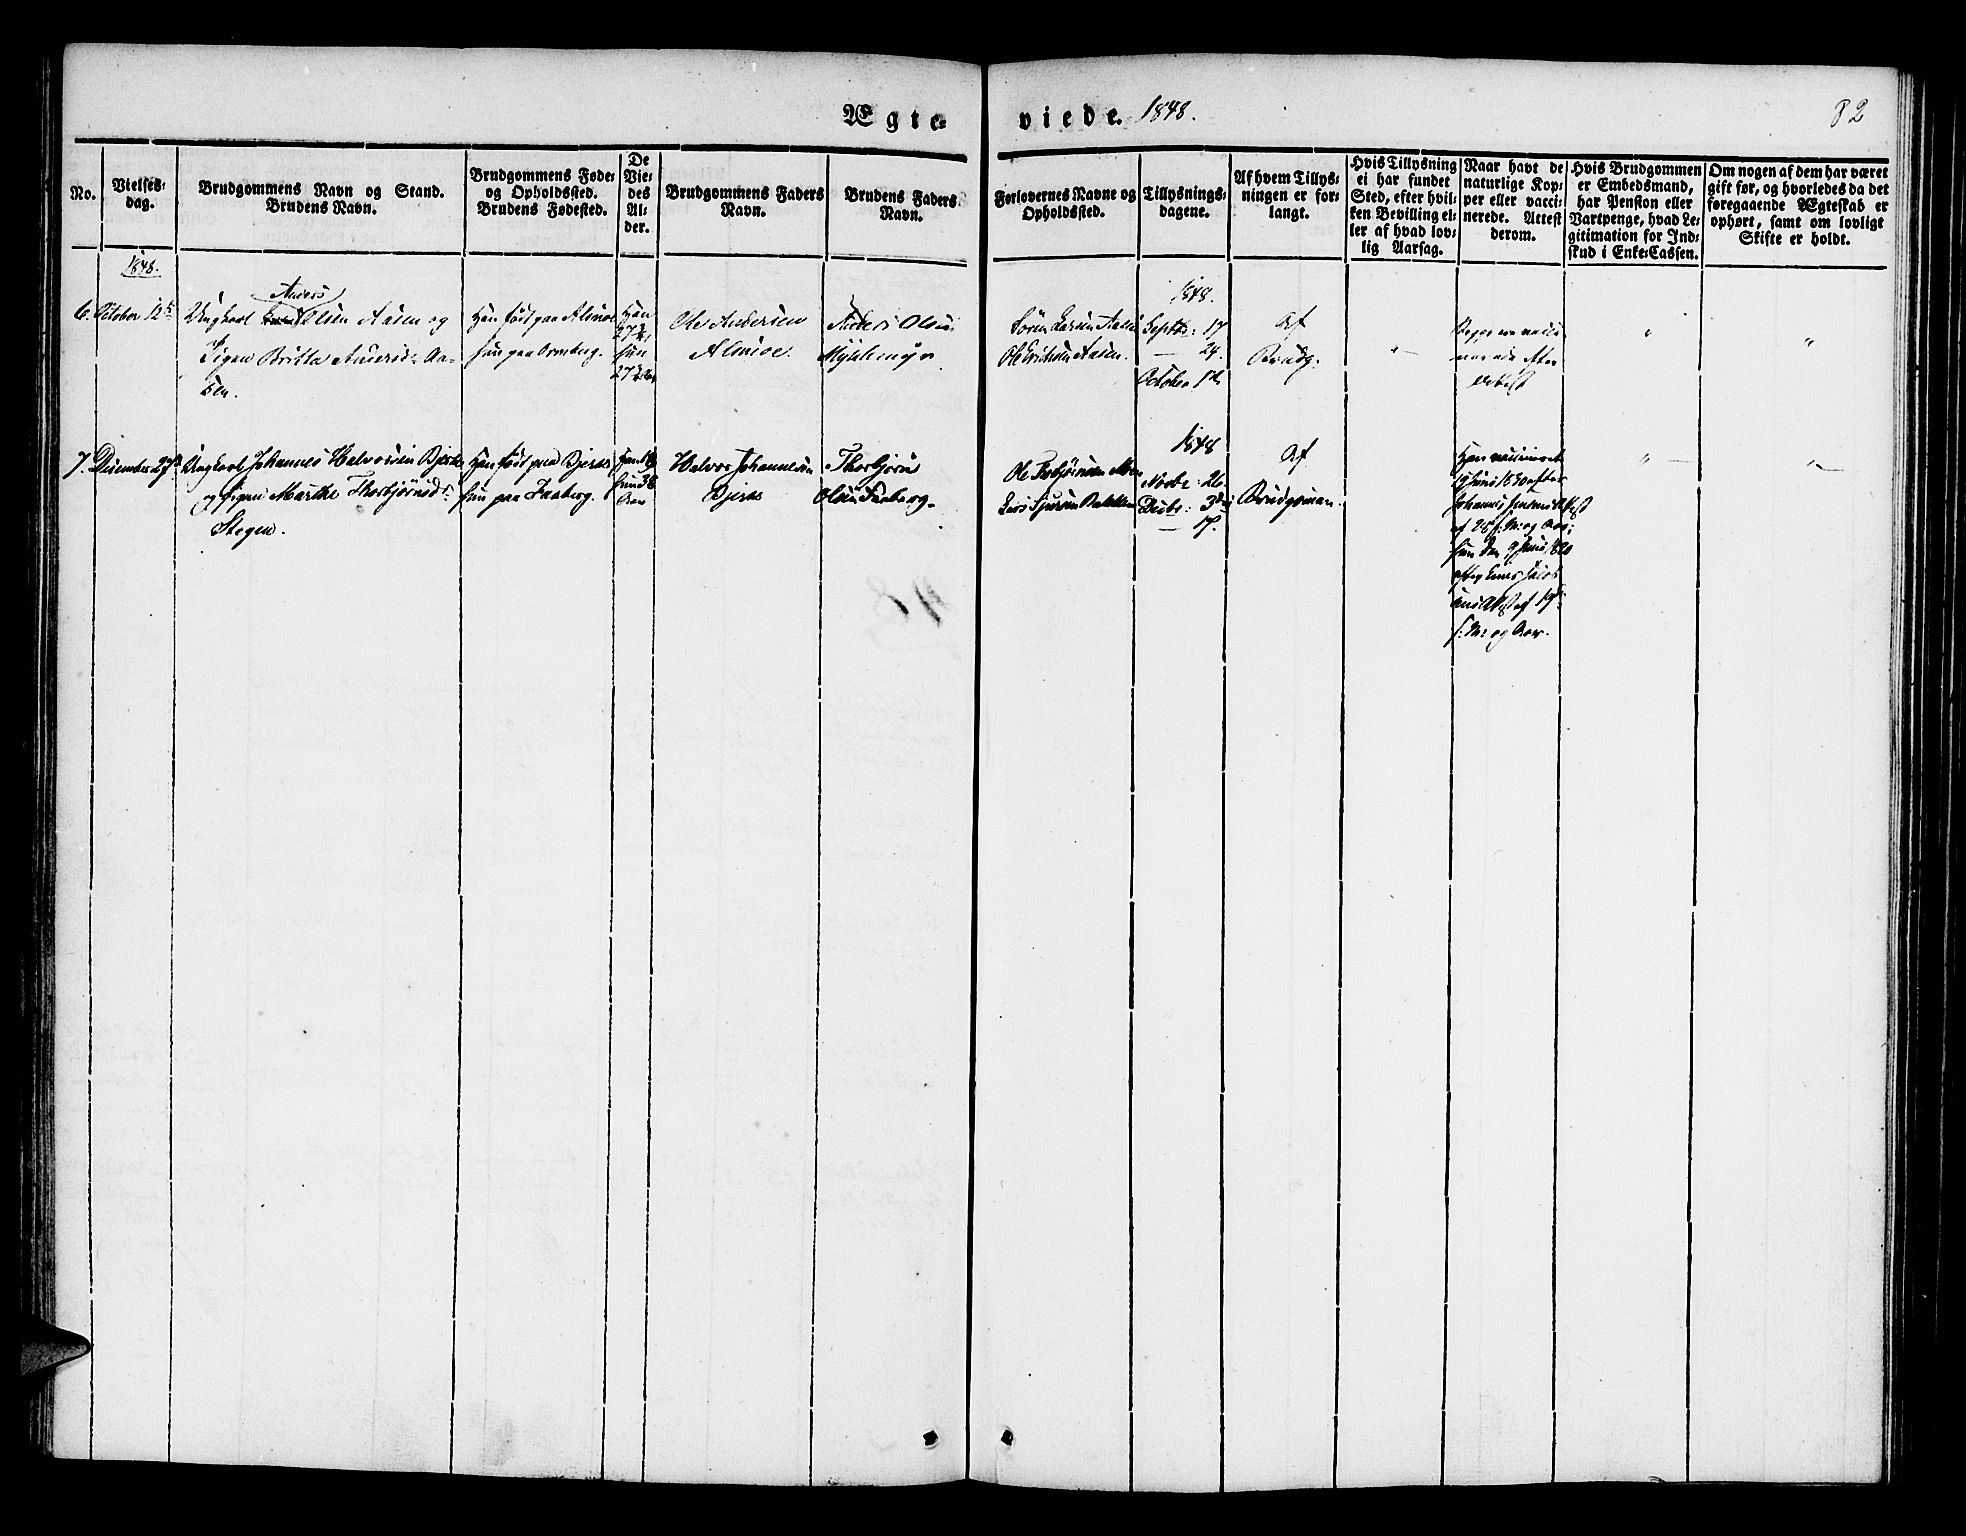 Ægte-
viede. 1848.
82
No.
Vielses-
dag.
Brudgommens Navn og Stand.
Brudens Navn.
Brudgommens Føde-
og Opholdssted.
Brudens Fødested.
De
Vie-
des
Al-
der.
Brudgommens Faders
Navn.
Brudens Faders
Navn.
Forlovernes Navne og
Opholdssted.
Tillysnings-
dagene.
Af hvem Tillys-
ningen er for-
langt.
Hvis Tillysning
ei har fundet
Sted, efter hvil-
ken Bevilling el-
ler af hvad lov-
lig Aarsag.
Naar havt de
naturlige Kop-
per eller vacci-
nerede. Attest
derom.
Hvis Brudgommen
er Embedsmand,
har Pension eller
Vartpenge, hvad Le-
gitimation for Ind-
skud i Enke-Cassen.
Om nogen af dem har været
gift før, og hvorledes da det
foregaaende Ægteskab er
ophørt, samt om lovligt
Skifte er holdt.
1848.
6. October 12te
Anders
Ungkarl Olsen Aasen og
Pigen Britta Andersd: Aa-
sen.
Han født paa Almoe
hun paa Ormberg.
Han
27
hun
27
Ole Andersen
Almoe.
Anders Olsen
Myklemyr
Søren Larsen Aasen
Ole Erichsen Aasen.
1848.
Septbr: 17
— 24.
October 1ste
Af
Brudg.
Begge ere vacci-
nerede efter
Attest
7. December 27de
Ungkarl Johannes Halvorsen Bjerke
og Pigen Marthe Thorbjørnsd:
Stegen.
Han født paa Bjerke
hun paa Faaberg.
Halvor Johannesen
Thorbjørn
Olsen Faaberg.
Ole Thorbjørnsen Moen
Lars Sjursen Bakken
1848
Novbr: 26.
Decbr: 3die
— 17.
Af
Brudgommen.
Han vaccineret
19 Juni 1830 efter
Johannes Attest
af 25 f: M: og Aar;
hun den 9 Juni 1820
efter
Attest af 19de
f: M: og Aar.